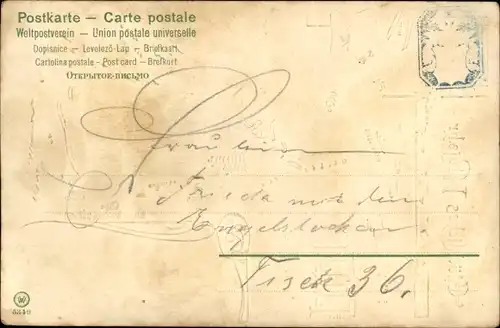 Postkarte – Carte postale
Weltpostverein – Union postale universelle
Dopisnice – Levelező-Lap – Briefkaart
Cartolina postale – Post card – Brefkort
Открытое-письмо
Frau
Frieda mit den
Engelslocken.
Tisch 36.